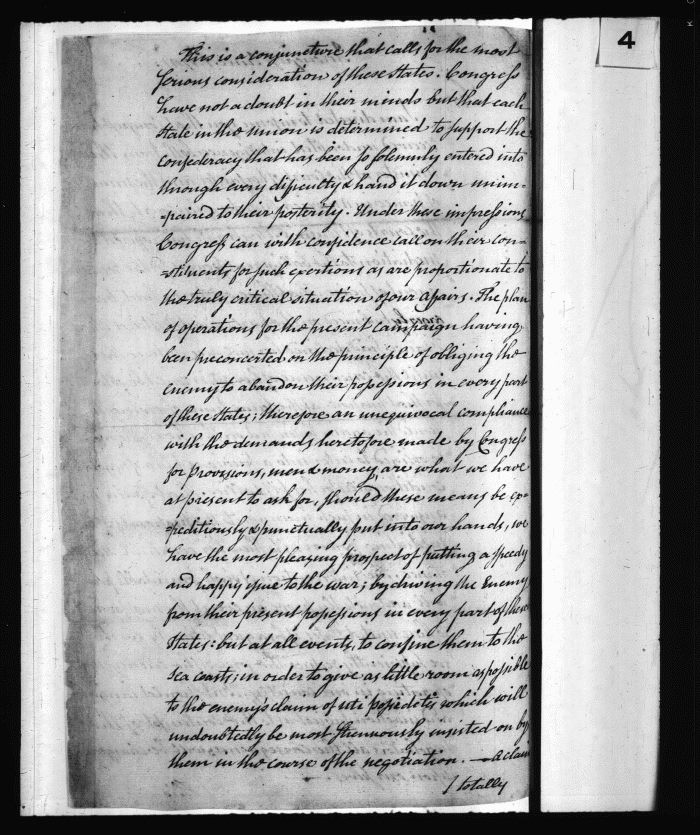 4
This is a conjuncture that calls for the most
serious consideration of these States. Congress
have not a doubt in their minds but that each
State in the union is determined to support the
confederacy that has been so solemnly entered into
through every difficulty & hand it down unim-
-paired to their posterity. Under these impressions
Congress can with confidence call on their con-
=stituents for such exertions as are proportionate to
the truly critical situation of our affairs. The plan
of operations for the present campaign having
been preconcerted on the principle of obliging the
enemy to abandon their possessions in every part
of these States; therefore an unequivocal compliance
with the demands heretofore made by Congress
for provisions, men & money, are what we have
at present to ask for, should these means be ex-
=peditiously & punctually put into our hands, we
have the most pleasing prospect of putting a speedy
and happy issue to the war; by driving the Enemy
from their present possessions in every part of these
States: but at all events, to confine them to the
Sea coasts; in order to give as little room as possible
to the enemy's claim of uti possidetis which will
undoubtedly be most strenuously insisted on by
them in the course of the negotiation. — a claim
totally